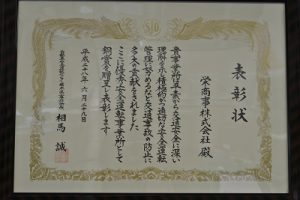 表彰状
栄商事株式会社 殿
貴事業所は平素から交通安全に深い
理解を示し積極的かつ適切な安全運転
管理に努めるなど交通事故の防止に
多大の貢献をされました
ここに優秀安全運転事業所として
銅賞を贈呈し表彰します
平成二十八年六月二十九日
相馬 誠